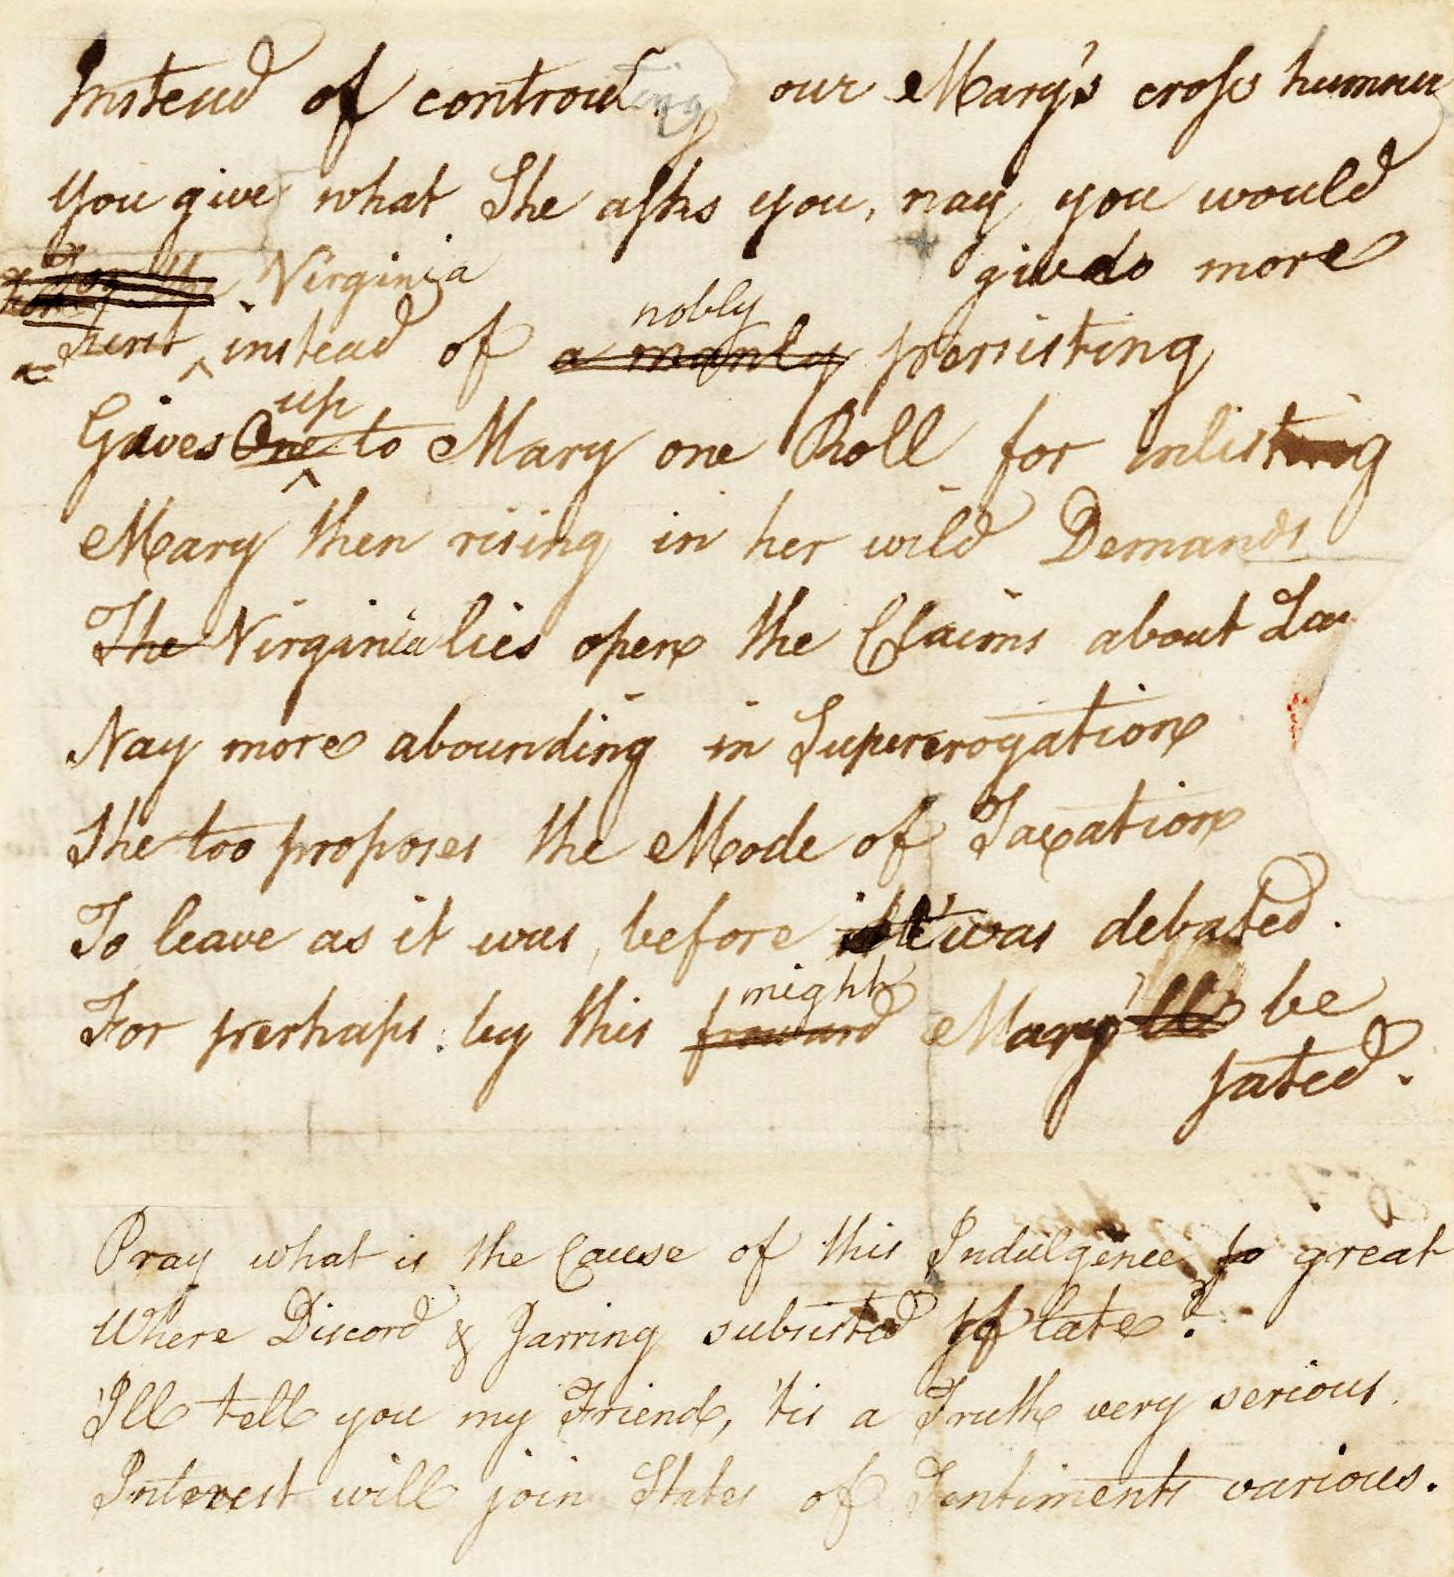 Instead of controuling our Mary's cross humour
You give what She asks you, nay you would
do more
For the Virginia
nobly
First instead of a manly persisting
up
Gives One to Mary one Roll for inlisting
Mary then rising in her wild Demands
The Virginia lies open the Claims about Lan
Nay more abounding in Supererogation
She too proposes the Mode of Taxation
To leave as it was, before 'twas debated.
might
For perhaps by this froward Mary'll be
sated.
Pray what is the Cause of this Indulgence so great
Where Discord & Jarring subsisted of late?
I'll tell you my Friend, 'tis a Truth very serious.
Interest will join States of Sentiments various.